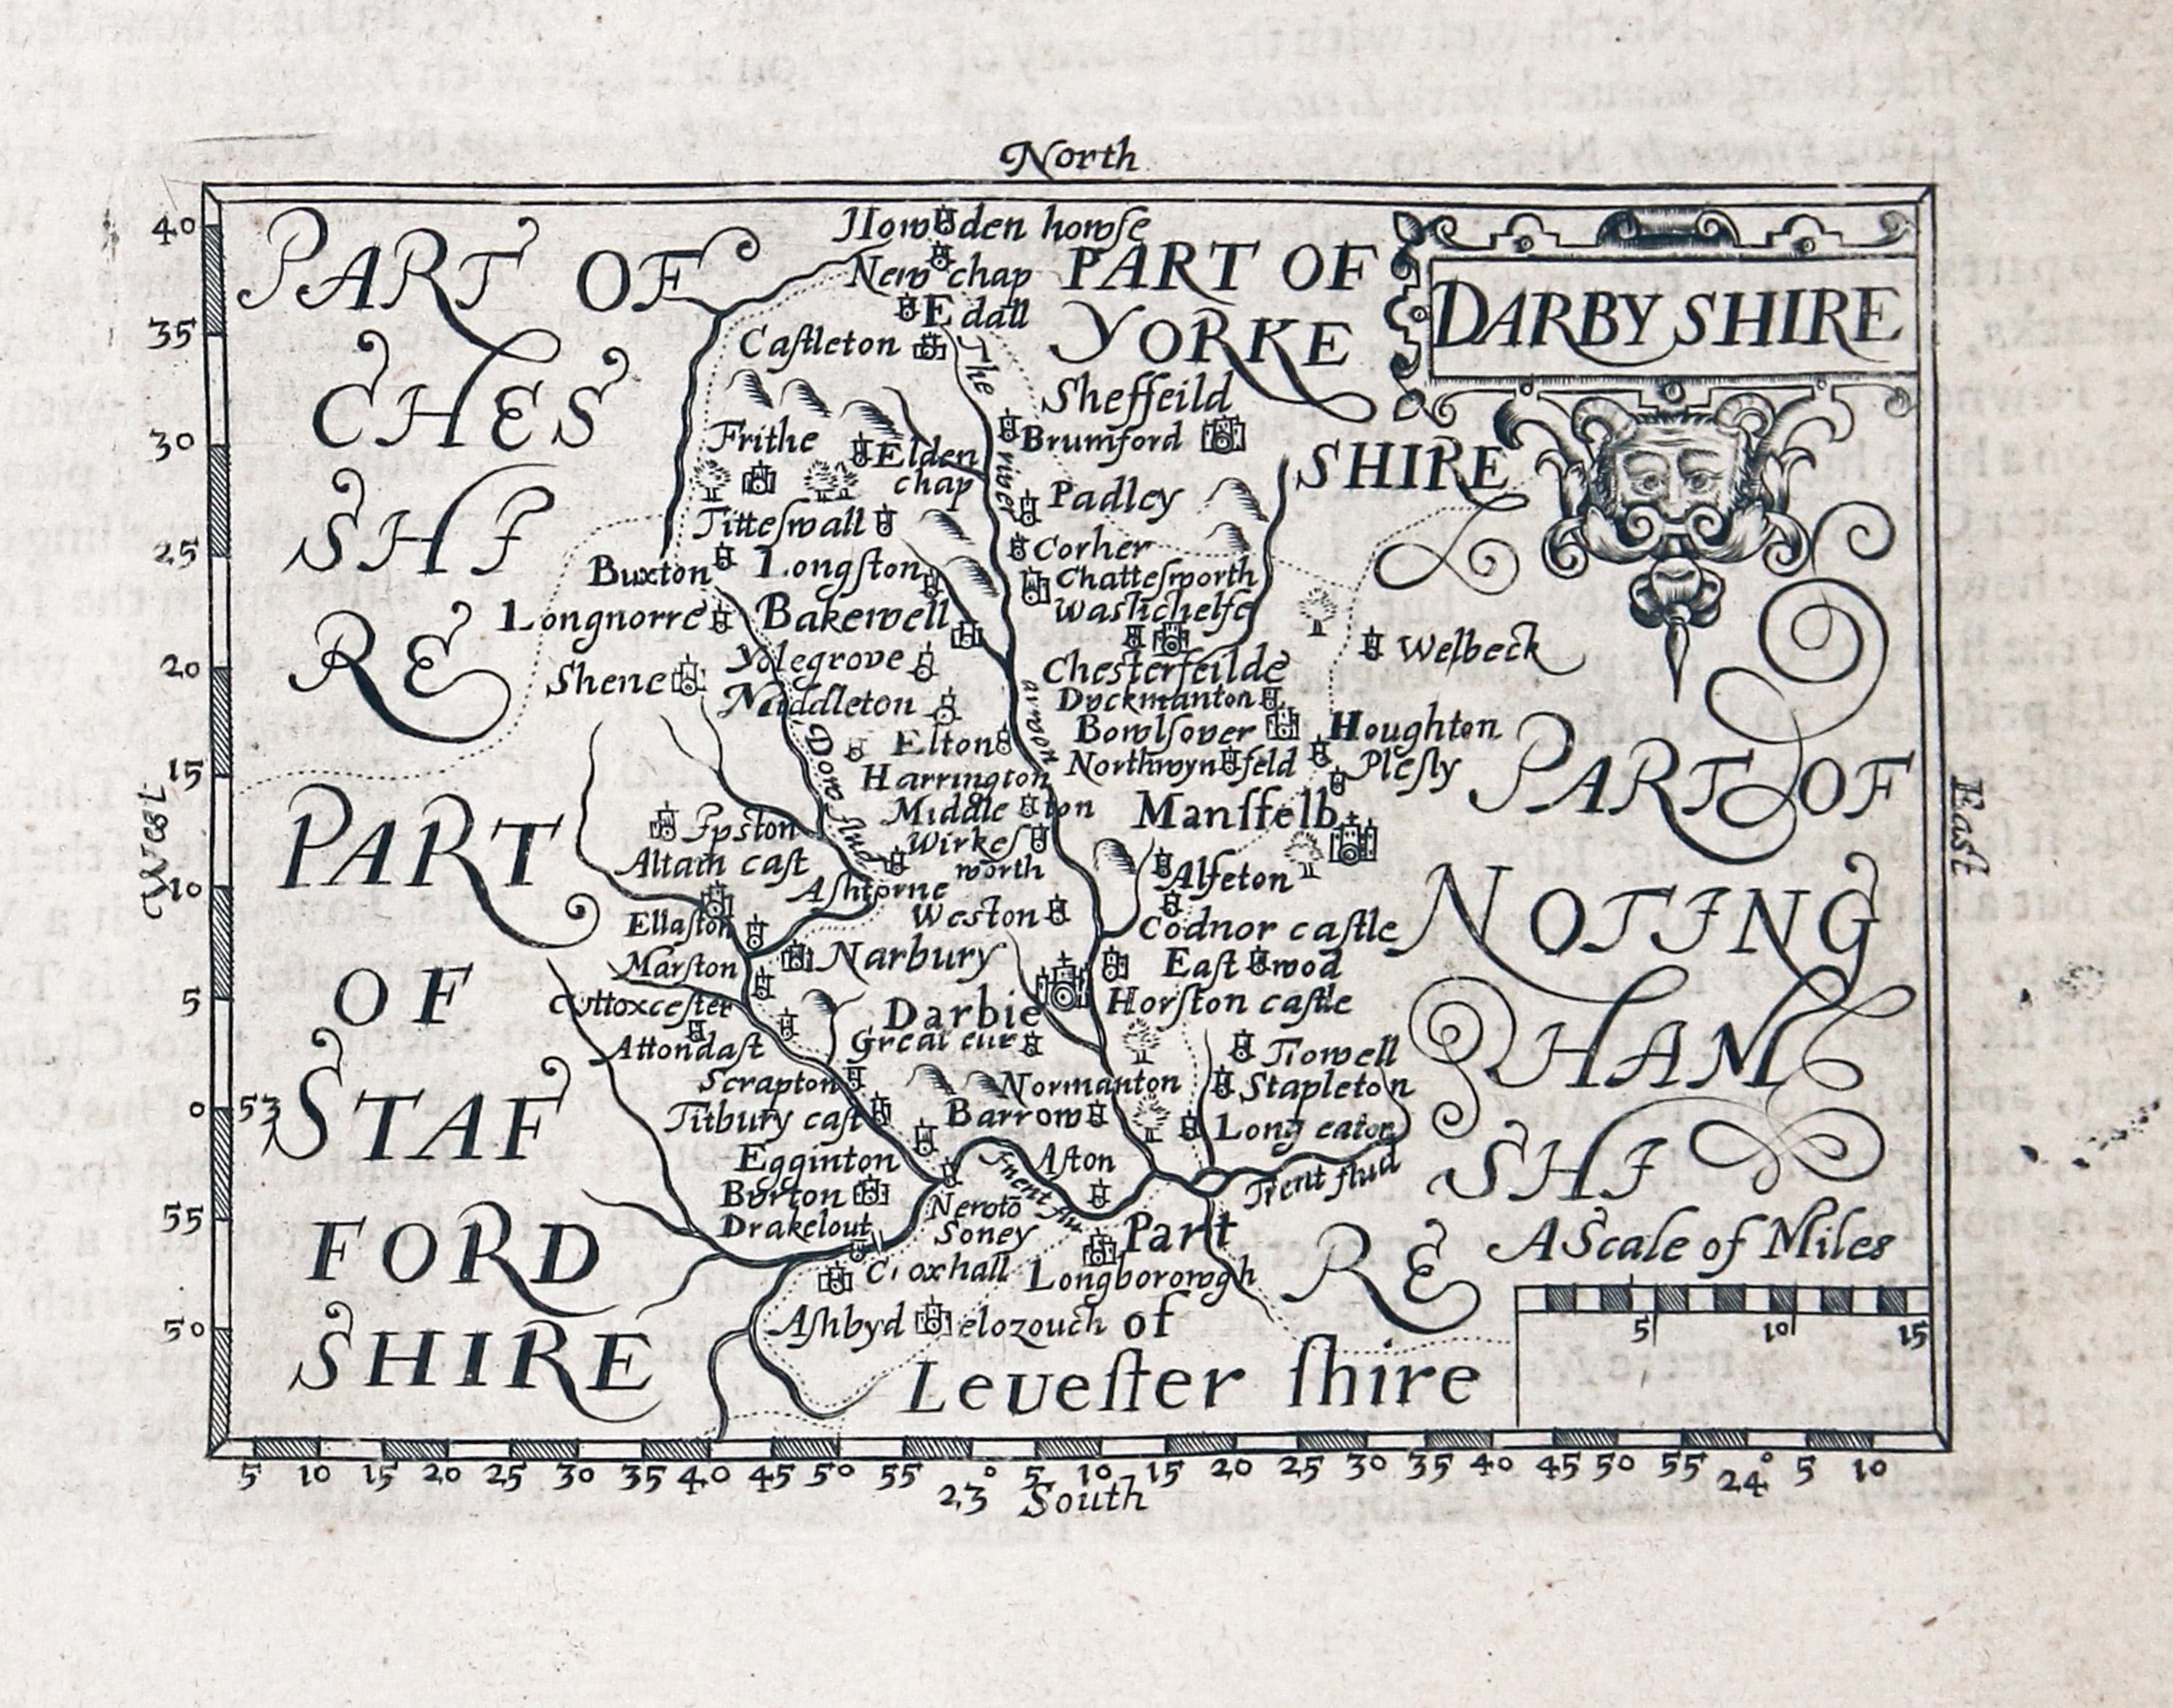 North
PART OF
CHES
SHI
RE
Howden howſe
New chap
Edall
Caſtleton
The
river
PART OF
YORKE
SHIRE
DARBY SHIRE
Sheffeild
Brumford
Frithe
Elden
chap
Padley
Titteſwall
Corher
Buxton
Longſton
Chatteſworth
Longnorre
Bakewell
Waſlichelfe
Welbeck
Yolegrove
Shene
Chesterfeilde
Middleton
Dyckmanton
Bowlſover
Houghton
Elton
Northwynfeld
Pleſly
Dove flud
Harrington
Middleton
Manſfelb
Ipston
Wirkeſ
worth
Altam caſt
Aſhborne
Alfeton
Weston
Codnor caſtle
Ellaſton
Narbury
Eaſtwod
Marſton
Darbie
Horſton caſtle
Uttoxceſter
Great eur
Attondaſt
Trowell
Scrapton
Normanton
Stapleton
Titbury caſt
Barrow
Long eaton
Egginton
Aſton
Trent flud
Burton
Newto
Soney
Drakelout
Croxhall
Longborowgh
Aſhbydelozouch
Part
of
Leueſter ſhire
PART
OF
STAF
FORD
SHIRE
PART OF
NOTING
HAM
SHI
RE
A Scale of Miles
5 10 15
West
East
40
35
30
25
20
15
10
5
0 53
55
50
5 10 15 20 25 30 35 40 45 50 55 0 5 10 15 20 25 30 35 40 45 50 55 0 5 10
23 24
South